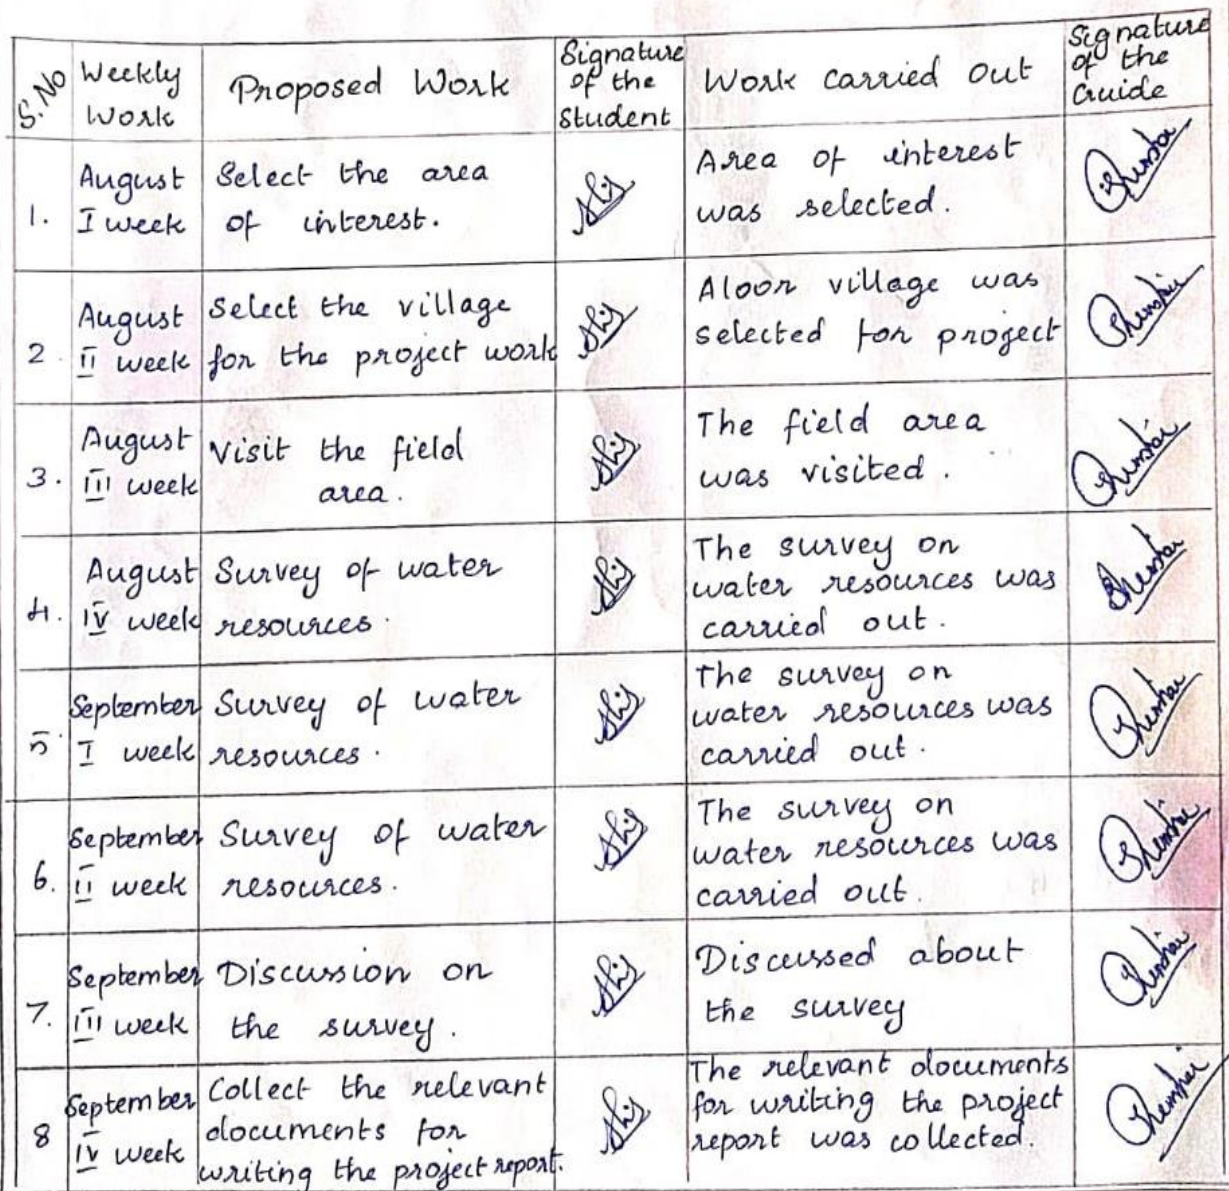 S.No
Weekly
Work
Proposed Work
Signature
of the
Student
Work carried out
Signature
of the
Guide
1.
August
I week
Select the area
of interest.
Area of interest
was selected.
2.
August
II week
Select the village
for the project work
Aloor village was
selected for project
3.
August
III week
Visit the field
area.
The field area
was visited.
4.
August
IV week
Survey of water
resources.
The survey on
water resources was
carried out.
5.
September
I week
Survey of water
resources.
The survey on
water resources was
carried out.
6.
September
II week
Survey of water
resources.
The survey on
water resources was
carried out.
7.
September
III week
Discussion on
the survey.
Discussed about
the survey
8
September
IV week
Collect the relevant
documents for
writing the project report.
The relevant documents
for writing the project
report was collected.